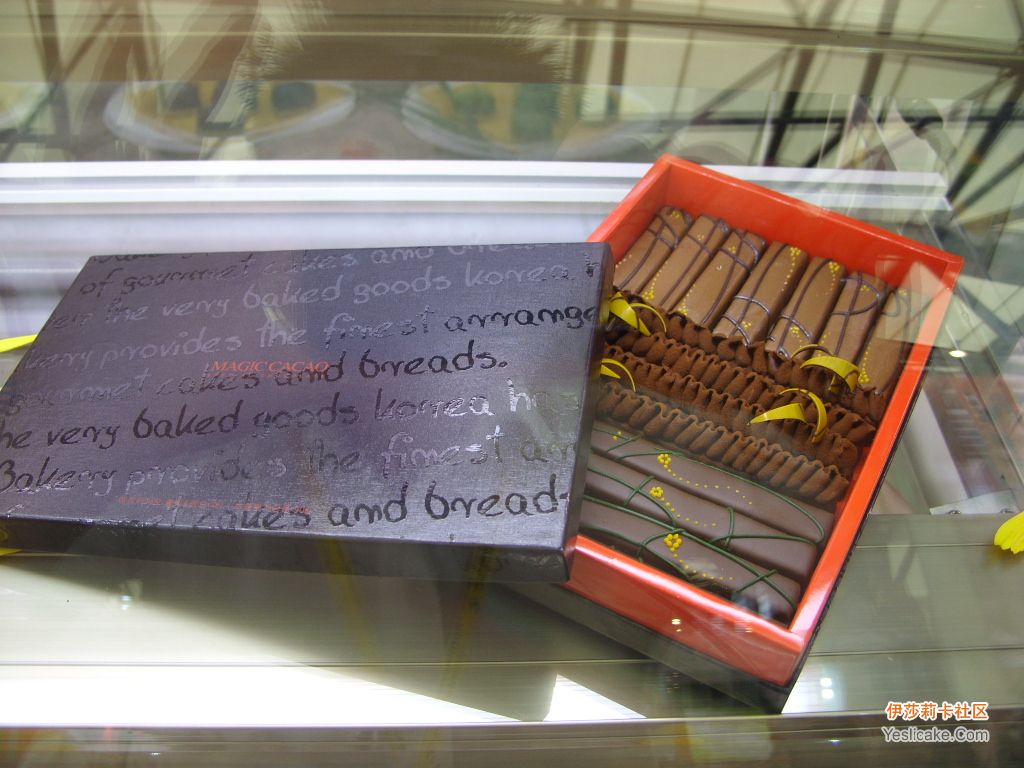 of gourmet cakes and breads
the very baked goods korrea h
provides the finest arrange
MAGIC CACAO
gourmet cakes and breads.
he very baked goods korrea has
Bakerry provides the finest arr
cakes and bread
伊莎莉卡社区
Yeslicake.Com